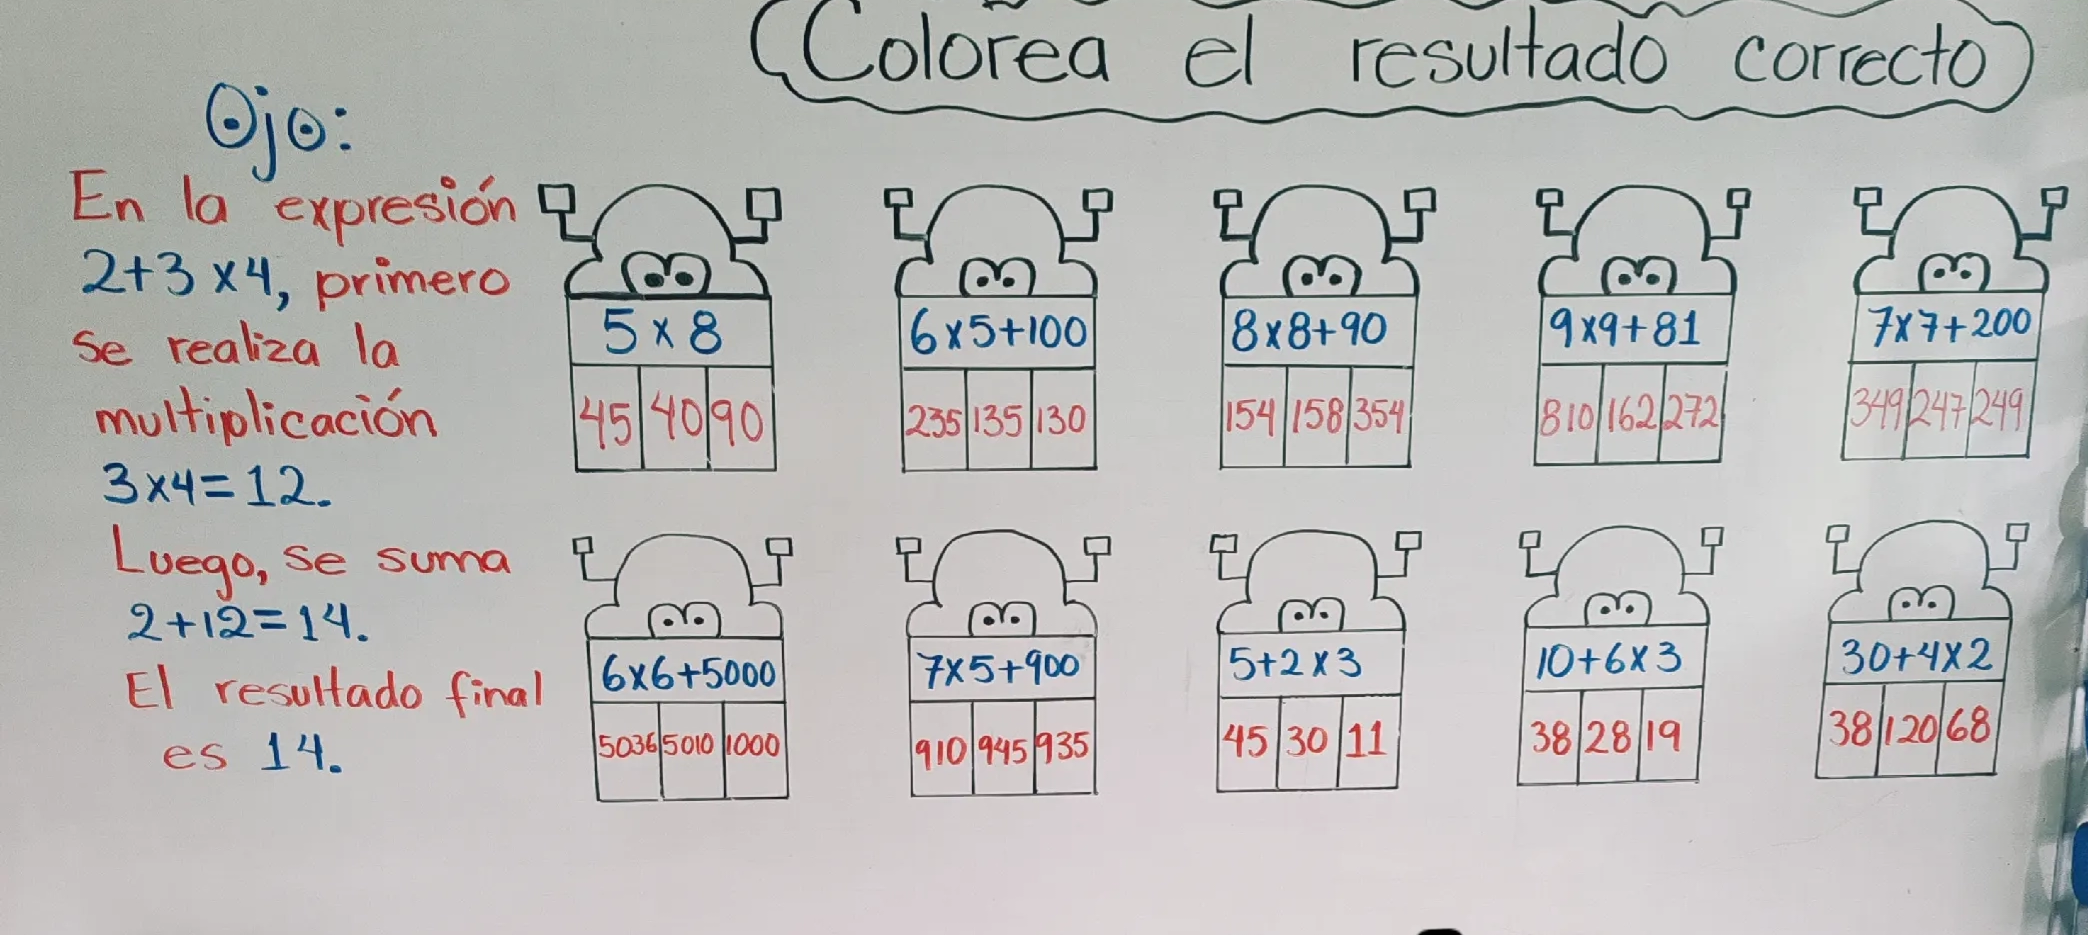 Colorea el resultado correcto
Ojo:
En la expresión
2+3x4, primero
se realiza la
multiplicación
3x4=12.
Luego, se suma
2+12=14.
El resultado final
es 14.
5x8
45 40 90
6x5+100
235 135 130
8x8+90
154 158 354
9x9+81
810 162 272
7x7+200
349 247 249
6x6+5000
5036 5010 1000
7x5+900
910 945 935
5+2x3
45 30 11
10+6x3
38 28 19
30+4x2
38 120 68